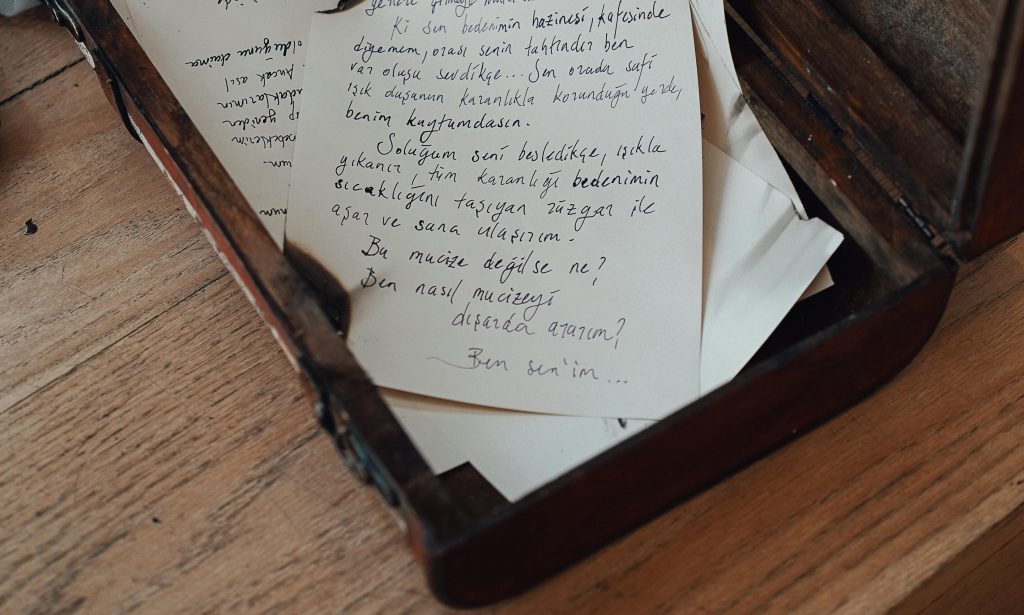 Ki sen bedenimin hazinesi, kafesinde
diyemem, orası senin tahtındır ben
var oluşu sevdikçe... Sen orada safi
ışık duşunun karanlıkla korunduğu yerde,
benim kuytumdasın.
Soluğum seni besledikçe, ışıkla
yıkanır, tüm karanlığı bedenimin
sıcaklığını taşıyan rüzgar ile
aşar ve sana ulaşırım.
Bu mucize değilse ne?
Ben nasıl mucizeyi
dışarda ararım?
Ben sen'im...
olduğuna daima
Ancak asıl
yeniden
bebeklerim